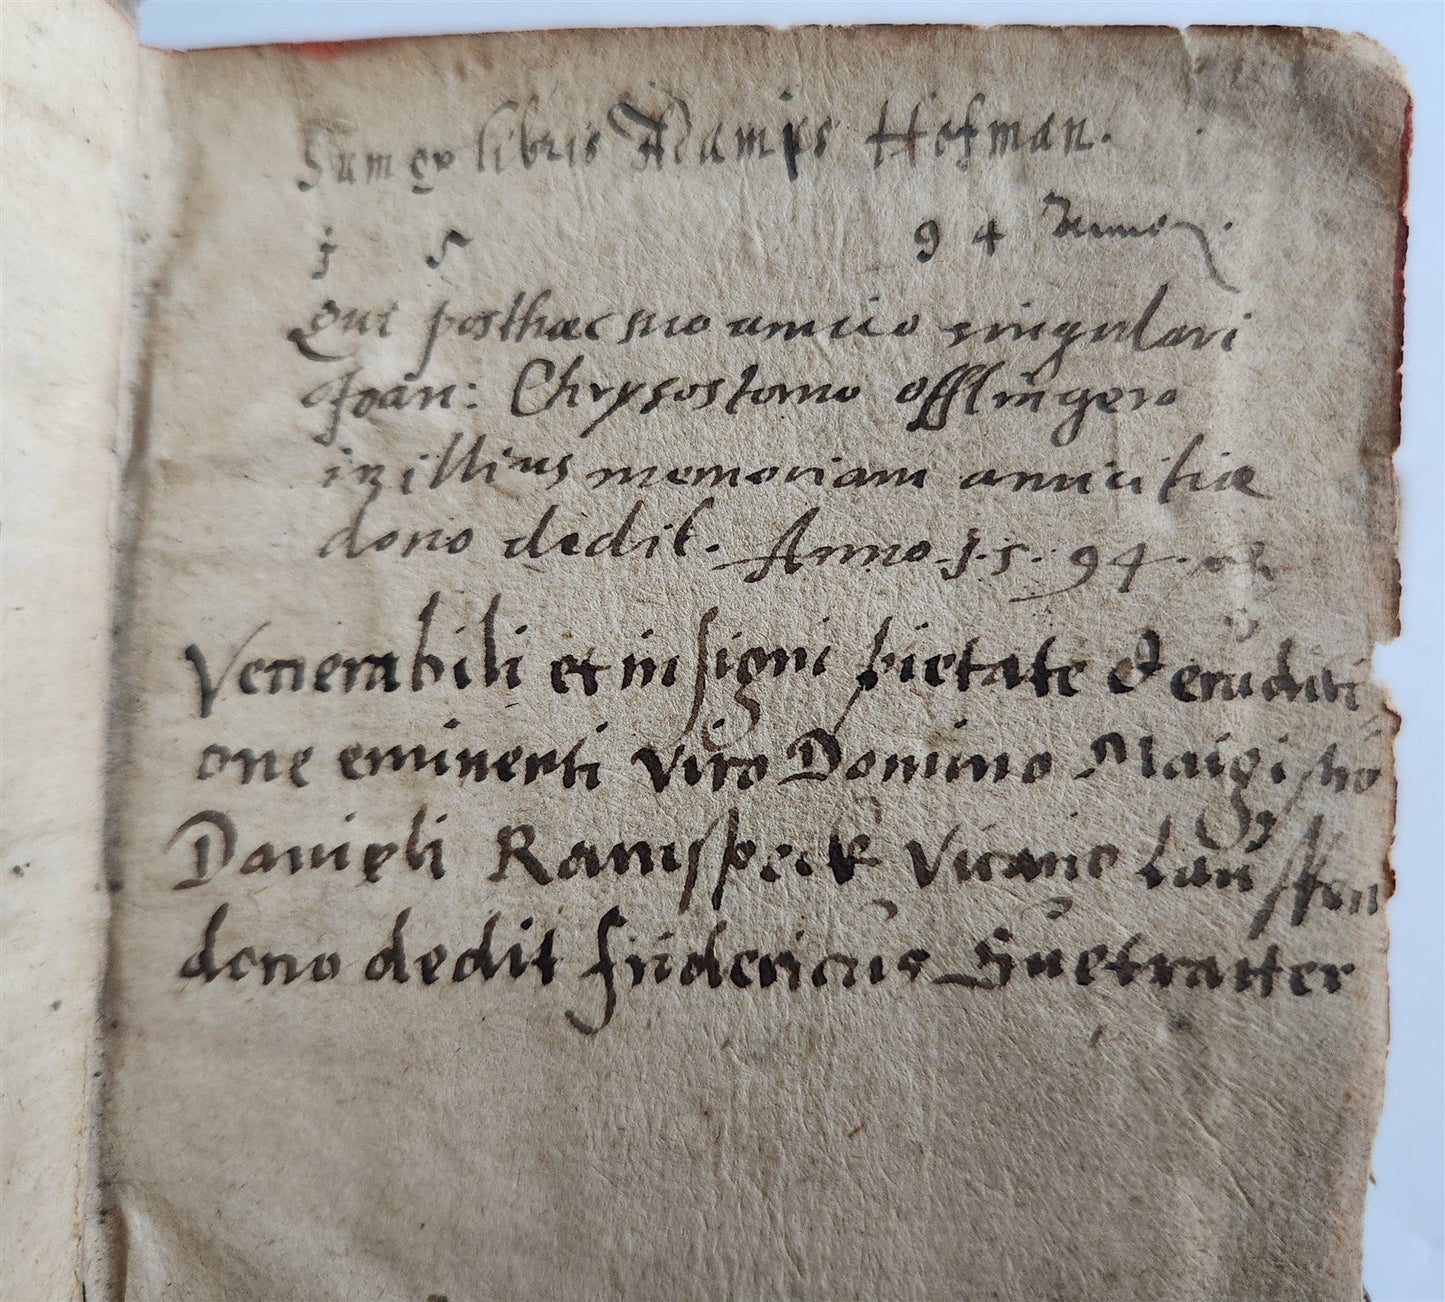 Sum ex libris Adami Hofman.
1 5 94
Qui posthac suo amico singulari
Joan: Chrysostomo offlingero
in illius memoriam amicitiae
dono dedit. Anno. 1. 5. 94.
Venerabili et insigni pietate et eruditi
one eminenti viro Domino Magistro
Danieli Ramspeck Vicario
dono dedit fridericus